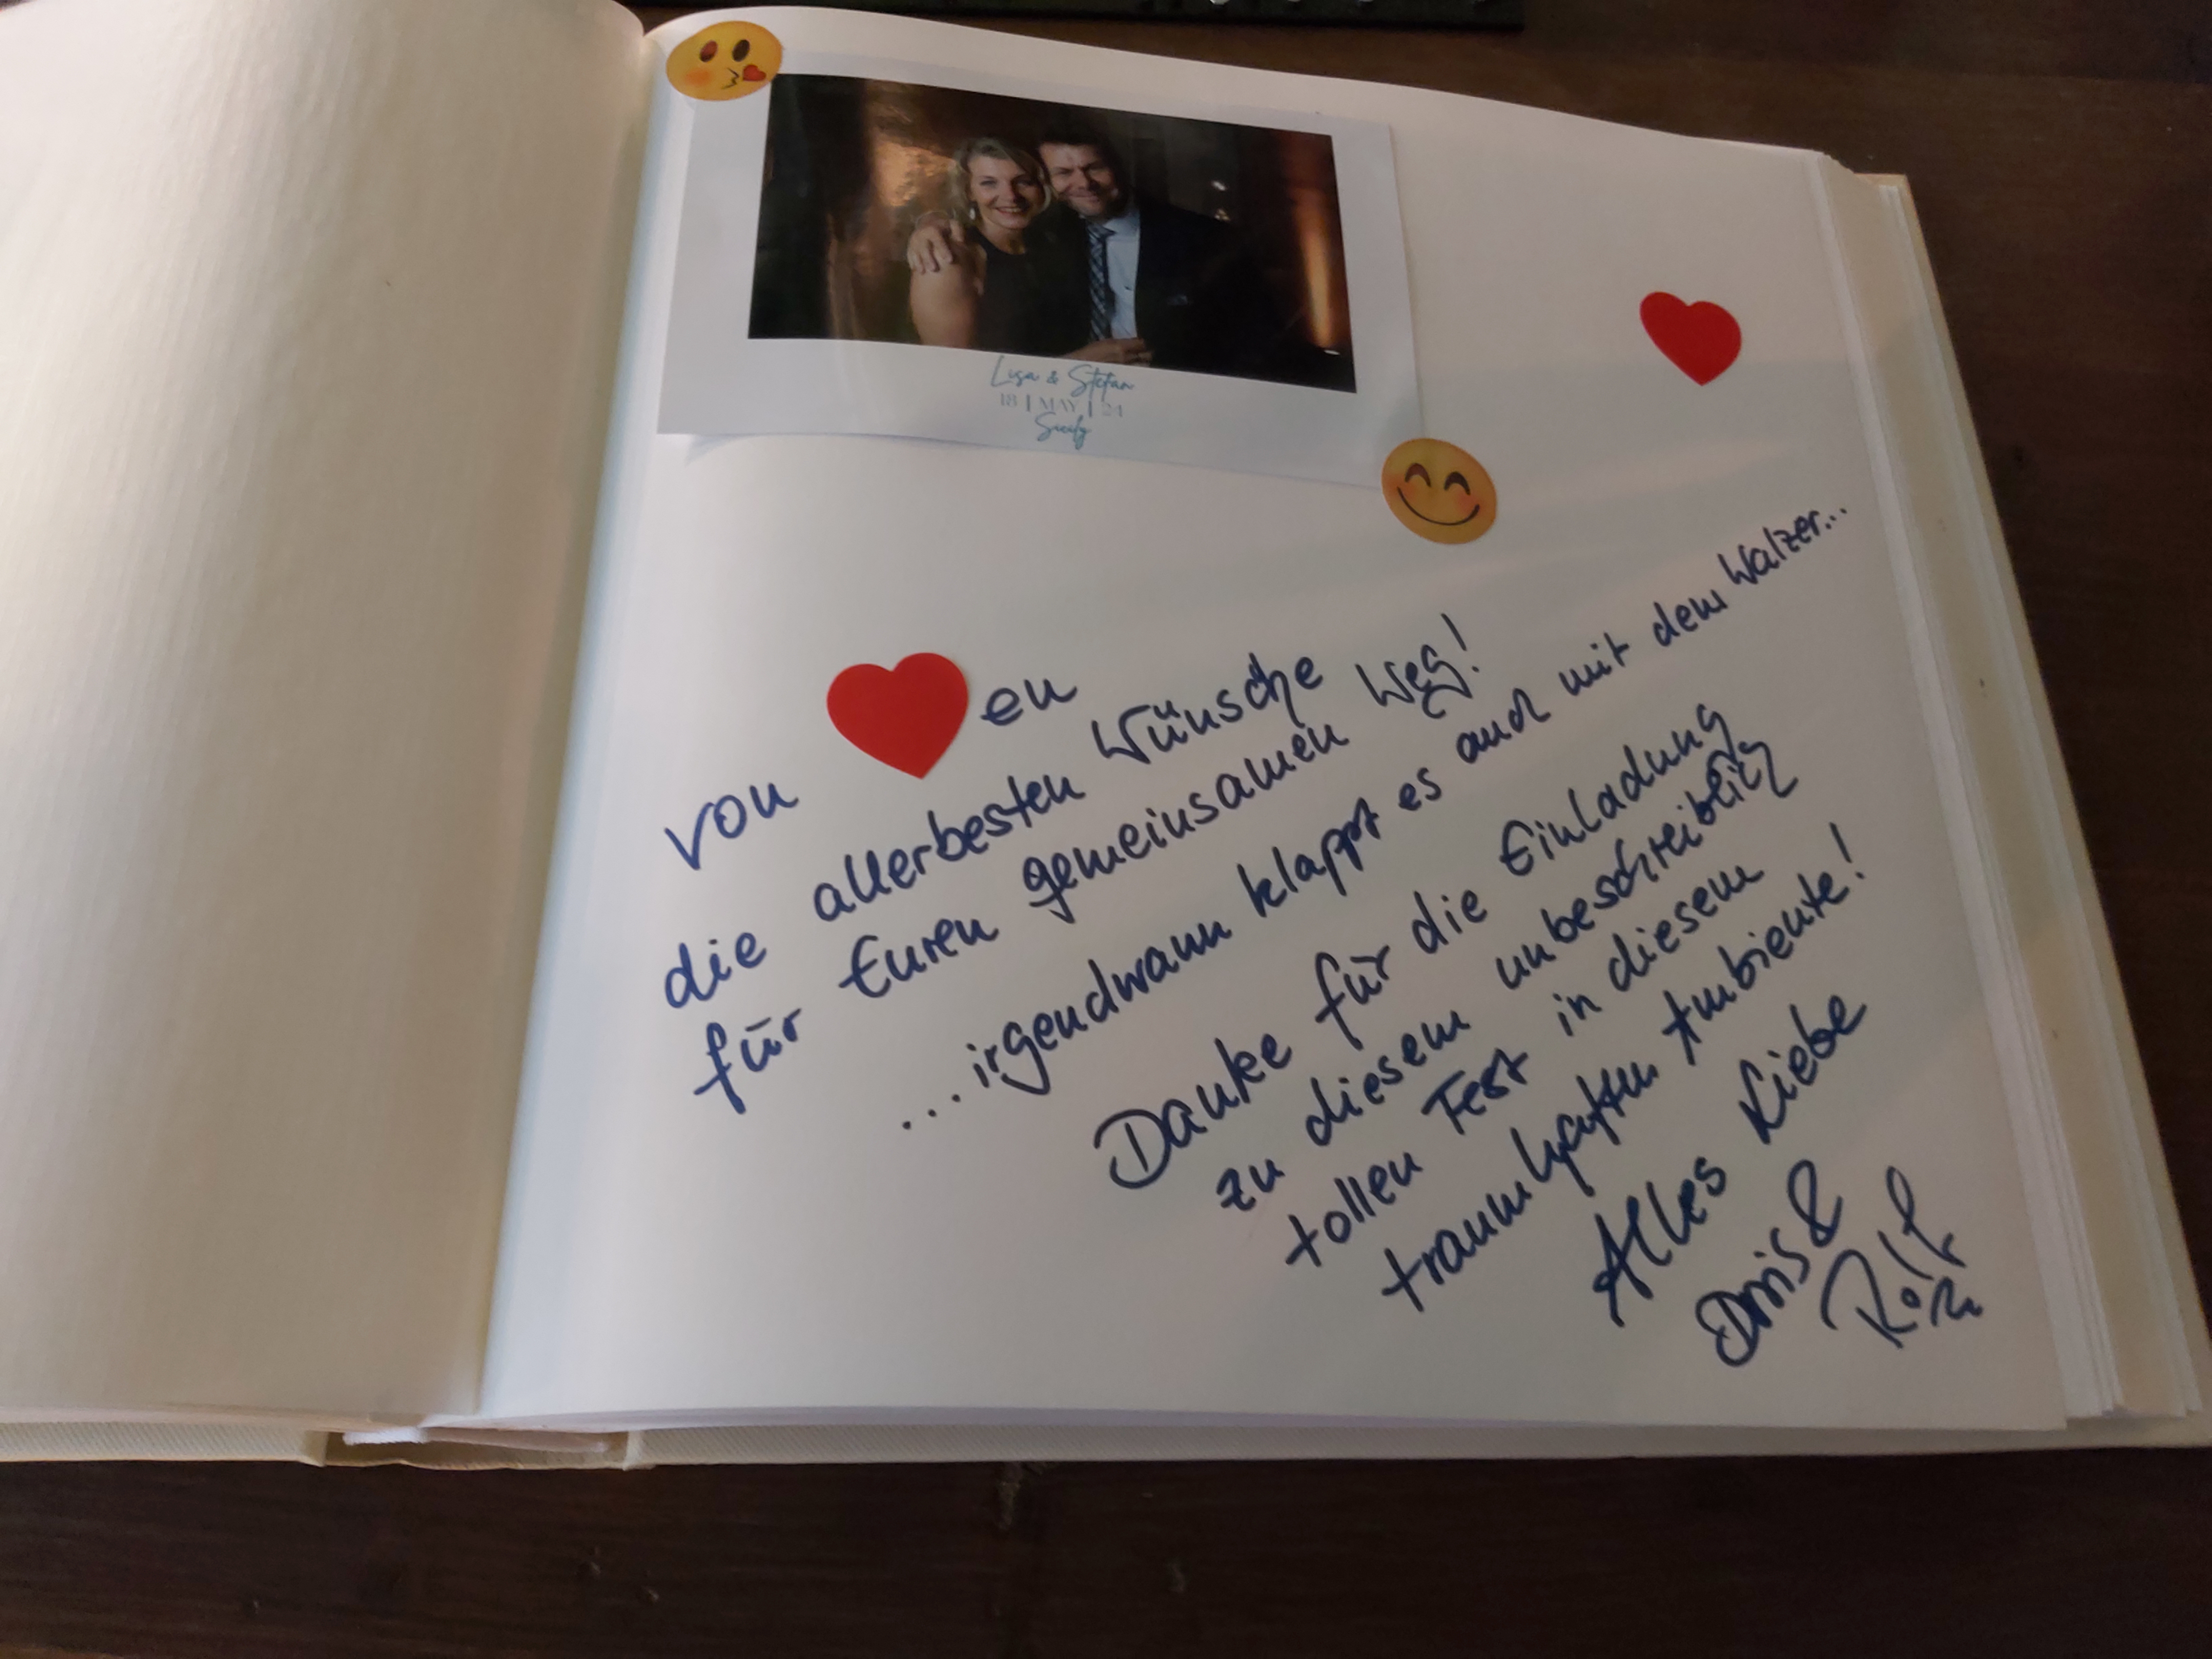 Lisa & Stefan
18 | MAY | 24
Sicily
von ❤en
die allerbesten Wünsche
für Euren gemeinsamen Weg!
...irgendwann klappt es auch mit dem Walzer...
Danke für die Einladung
zu diesem unbeschreiblich
tollen Fest in diesem
traumhaften Ambiente!
Alles Liebe
Doris &
Rolf